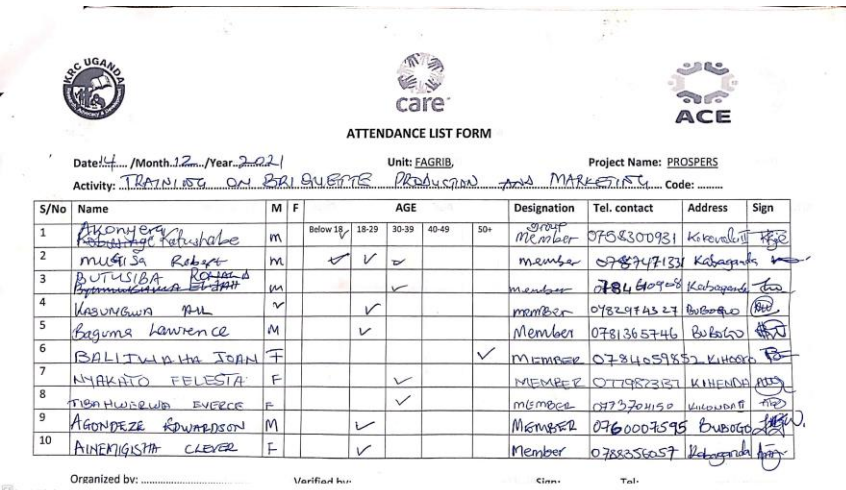 KRC UGANDA
care
ACE
ATTENDANCE LIST FORM
Date: 14 /Month 12 /Year 2021 Unit: FAGRIB, Project Name: PROSPERS
Activity: TRAINING ON BRIQUETTE PRODUCTION AND MARKETING Code: ........
S/No Name M F AGE Designation Tel. contact Address Sign
Below 18 18-29 30-39 40-49 50+
1 Akonyera Katushabe m ✓ group Member 0758300931
2 Robert m ✓ ✓ ✓ member Kabaganda
3 BUTUSIBA RONALD m ✓ member Kabaganda
4 KABUNGWA ✓ ✓ member 0782974327 BUBOGO
5 Baguma Lawrence M ✓ Member 0781365746 BUBOGO
6 BALIJWAHA JOAN F ✓ MEMBER 0784059852 KIHOORO
7 NYAKATO FELESTA F ✓ MEMBER KIHENDA
8 TIBAHWERWA EVERCE F ✓ MEMBER 0773704150
9 AGONDEZE EDWARDSON M ✓ MEMBER 0760007595 BUBOGO
10 AINEMIGISHA CLEVER F ✓ Member 0788356057 Kabaganda
Organized by: ........ Verified by: Sign: Tel: